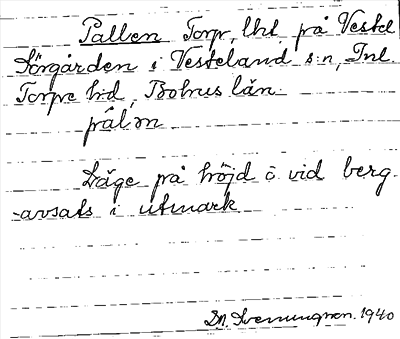 Pallen Torp, lht. på Vestel
Sörgården i Vesteland s:n, Inl.
Torpe h:d, Bohus län.
pålm
Läge på höjd o vid berg-
avsats i utmark
Dn. Svenungson. 1940